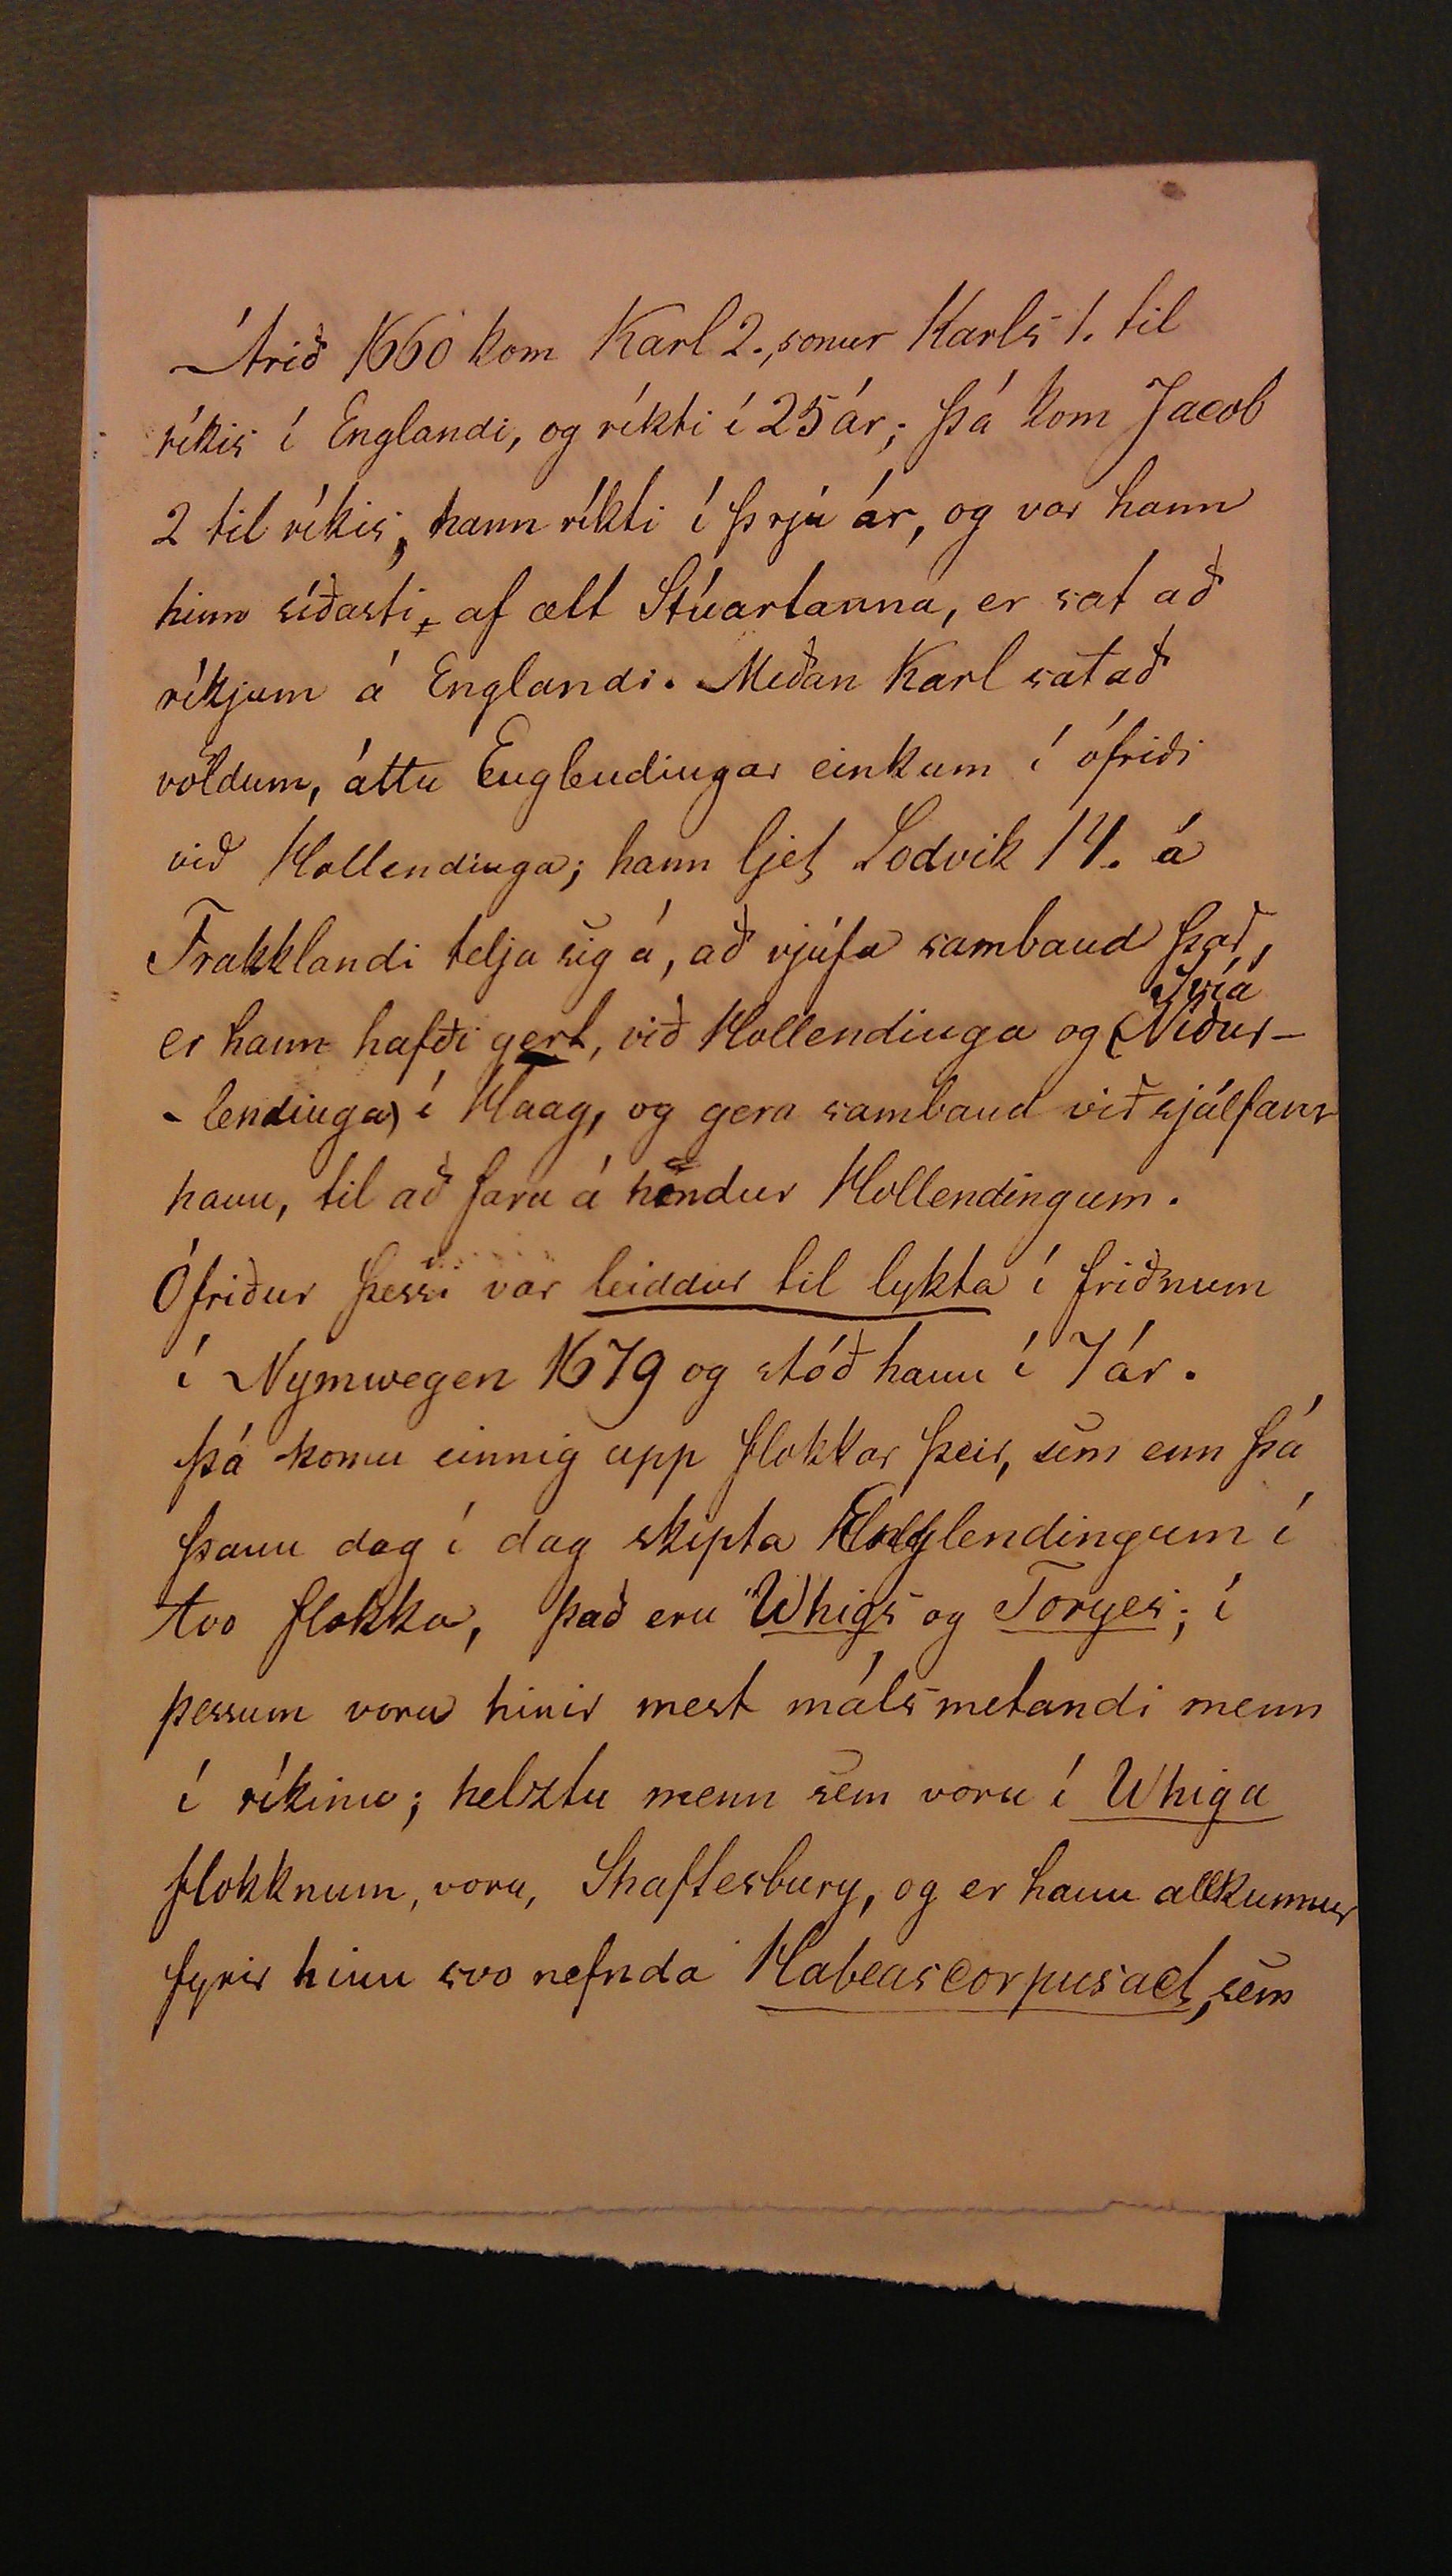 Árið 1660 kom Karl 2., sonur Karls 1. til
ríkis í Englandi, og ríkti í 25 ár; þá kom Jacob
2 til ríkis, hann ríkti í þrjú ár, og var hann
hinn síðasti, af ætt Stúartanna, er sat að
ríkjum á Englandi. Meðan Karl sat að
völdum, áttu Englendingar einkum í ófriði
við Hollendinga; hann ljet Lodvik 14. á
Frakklandi telja sig á, að rjúfa samband það,
Svía
er hann hafði gert, við Hollendinga og (Niður-
-lendinga) í Haag, og gera samband við sjálfann
hann, til að fara á höndur Hollendingum.
Ófriður þessi var leiddur til lykta í friðnum
í Nymwegen 1679 og stóð hann í 7 ár.
Þá komu einnig upp flokkar þeir, sem enn þá
þann dag í dag skipta Englendingum í
tvo flokka, það eru Whigs og Toryes; í
þessum voru hinir mest máls metandi menn
í ríkinu; helztu menn sem voru í Whiga
flokknum, voru, Shaftesbury, og er hann allkunnur
fyrir hinn svo nefnda Habeascorpusact, sem